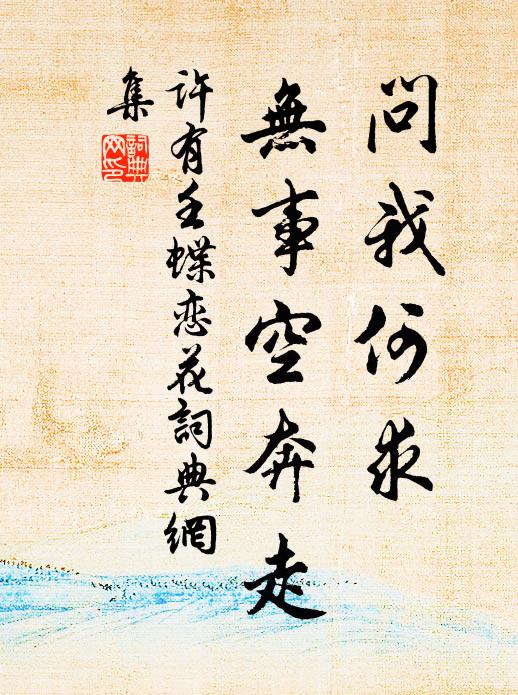 問我何求
無事空奔走
許有壬蝶恋花詞典網
集
詞典
网印